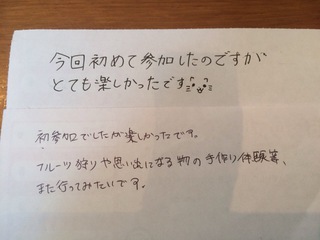 今回初めて参加したのですが
とても楽しかったです
初参加でしたが楽しかったです。
フルーツ狩りや思い出になる物の手作り体験等、
また行ってみたいです。